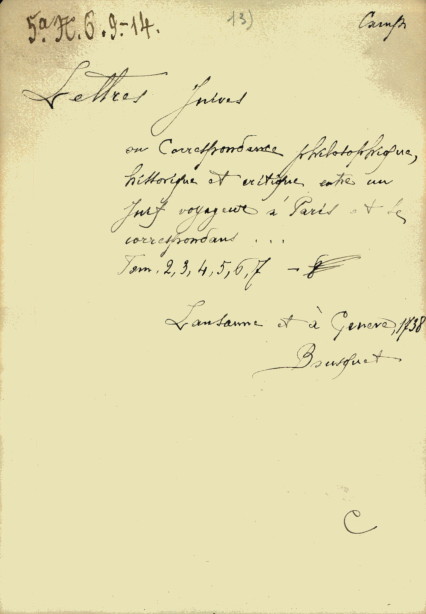 5ª H. 6. 9-14.
13)
Lettres Juives
ou Correspondance philosophique,
historique et critique entre un
Juif voyageur à Paris et se
correspondans ...
Tom. 2, 3, 4, 5, 6, 7 -
Lausanne et à Geneve, 1738
Bousquet
C